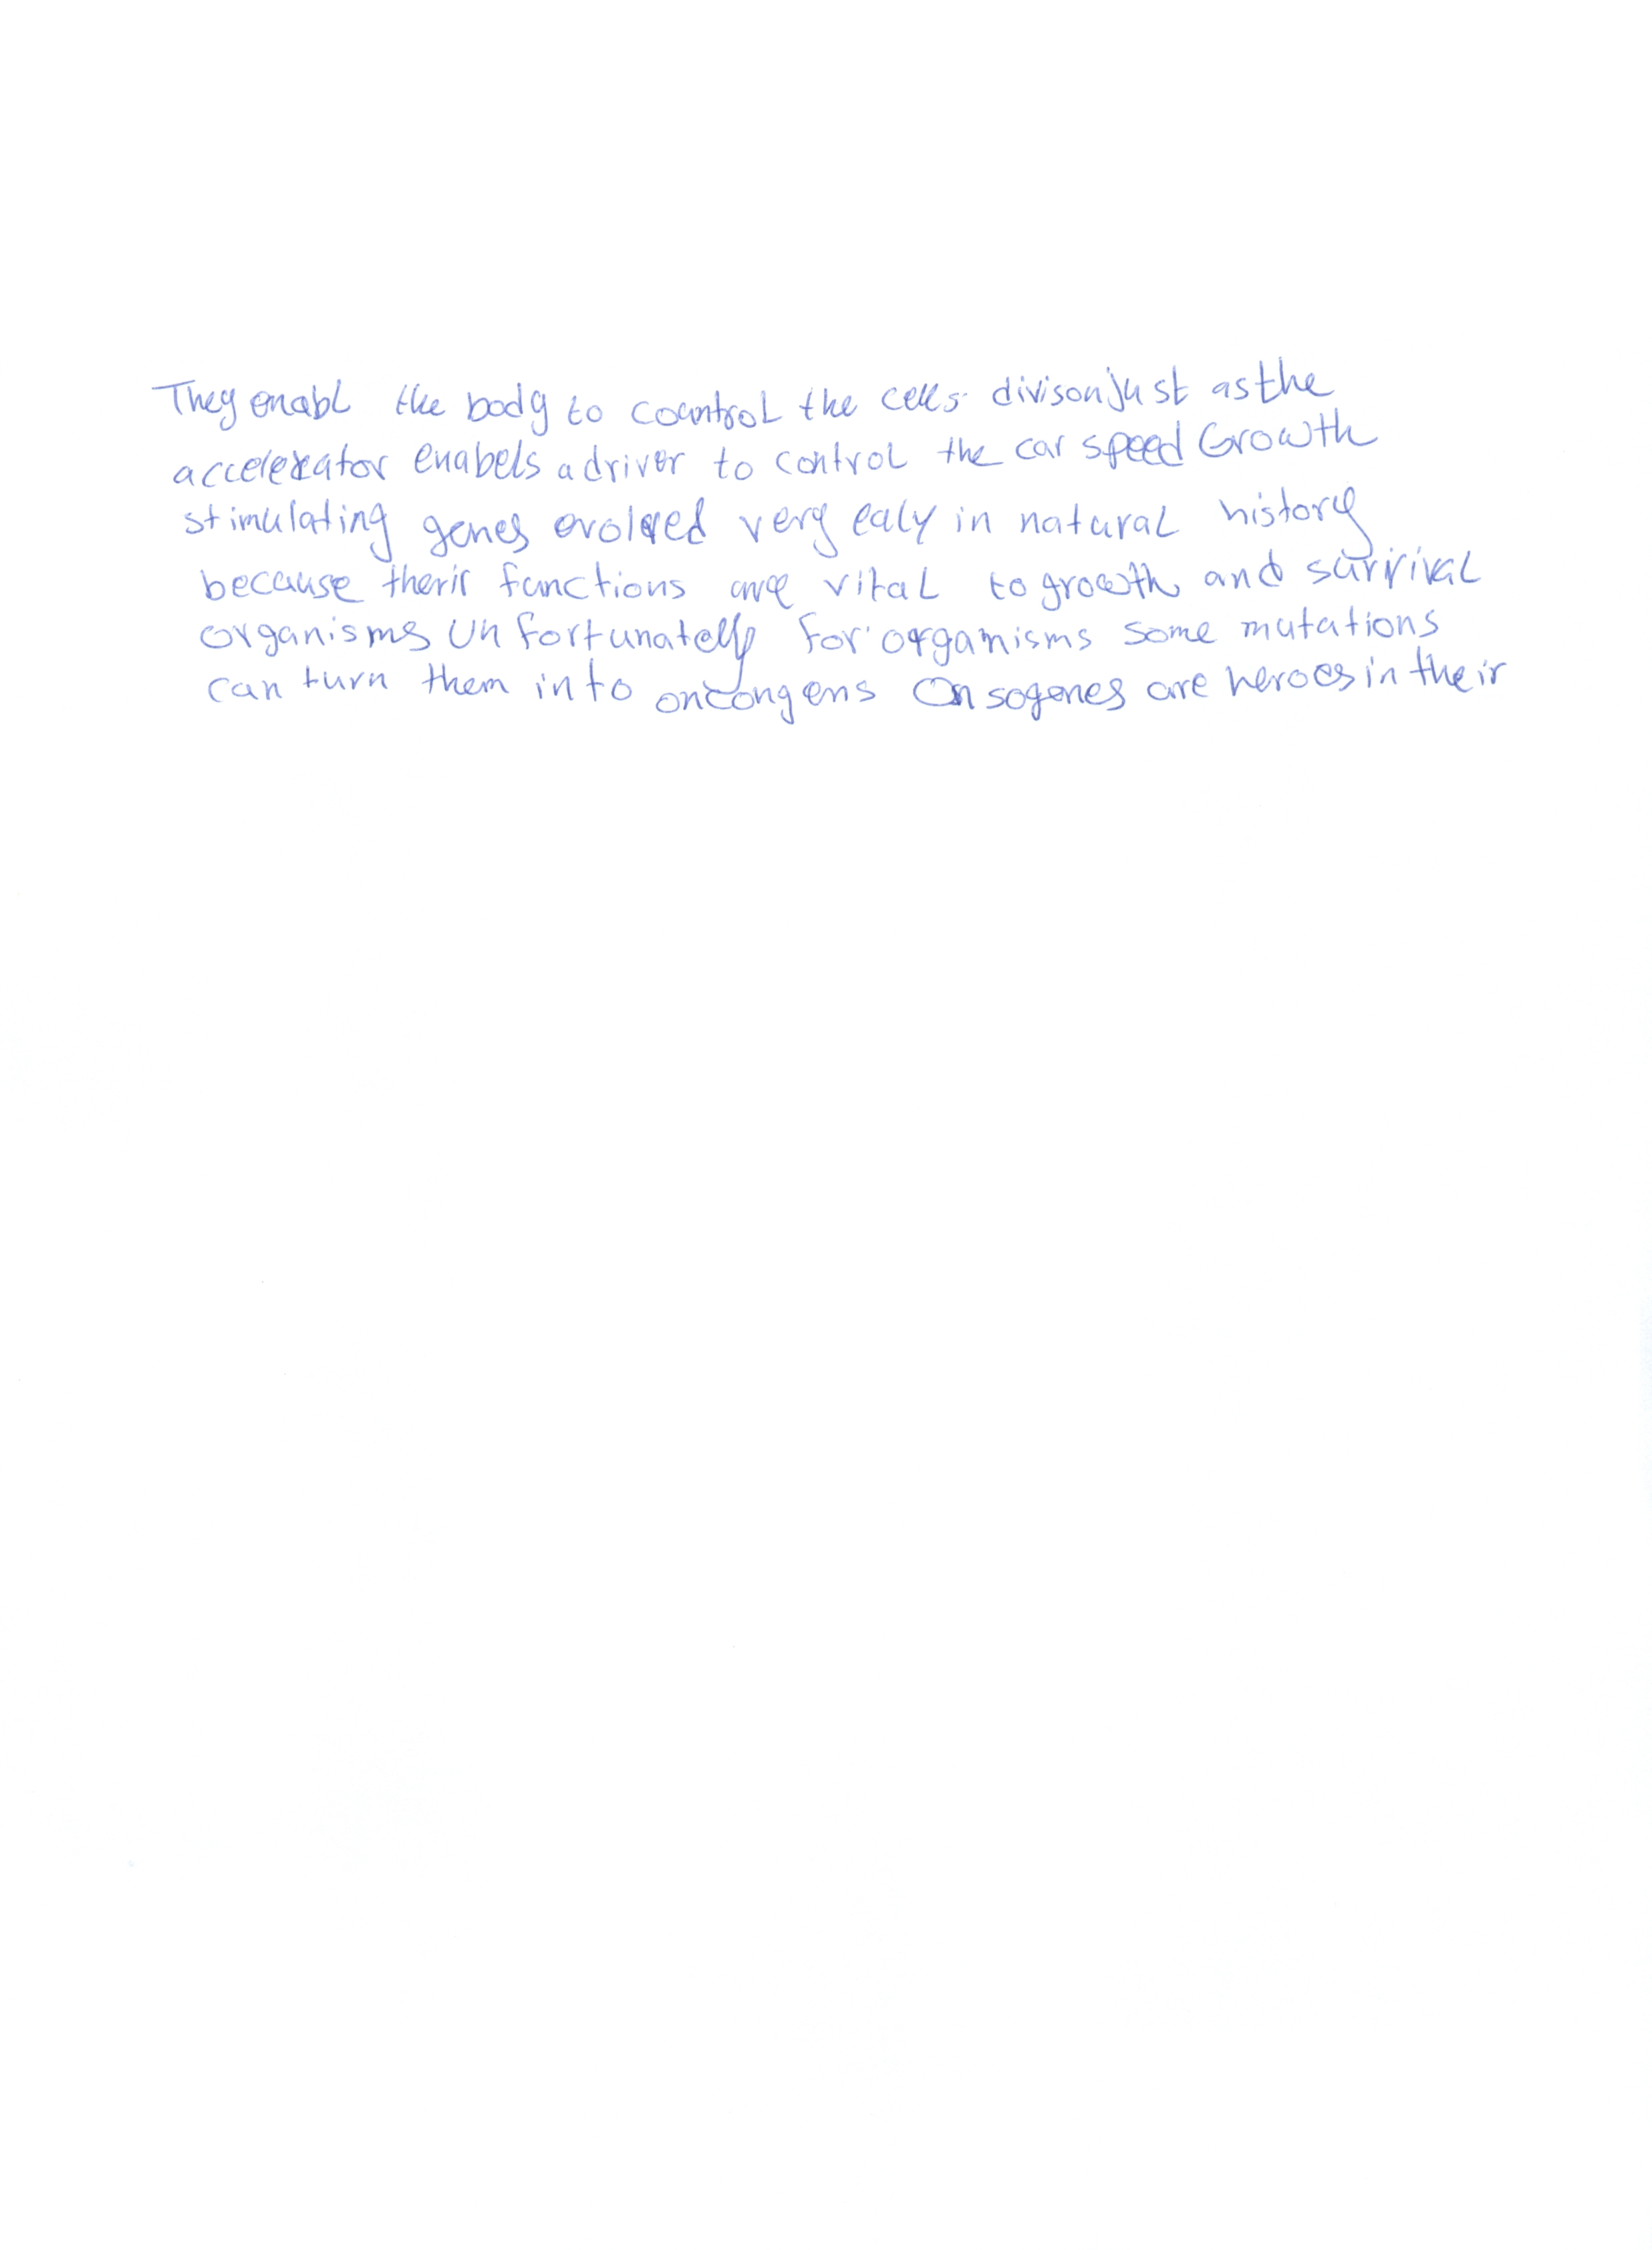 They enabl the body to countrol the cells divison just as the
accelerator enabels a driver to control the car speed Growth
stimulating genes evolved very ealy in natural history
because therir functions are vital to growth and survival
organisms Unfortunatelly for organisms some mutations
can turn them into oncongens Onsogenes are heroes in their